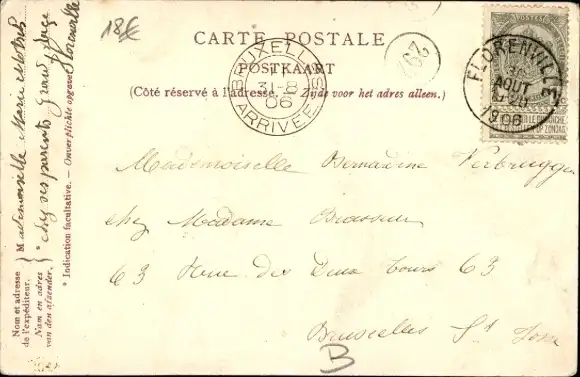 18€
CARTE POSTALE
POSTKAART
(Côté réservé à l'adresse. — Zijde voor het adres alleen.)
BRUXELLES
11
31-8
06
ARRIVEE
29
POSTES
FLORENVILLE
AOUT
1906
Mademoiselle Bernardine Verbruggen
chez Madame Brasseur
63 Rue des Deux Tours 63
Bruxelles St Josse
B
Nom et adresse de l'expéditeur.
Naam en adres van den afzender.
Mademoiselle Maria
* chez ses parents Grand'
Florenville
* Indication facultative. — Onverplichte opgave